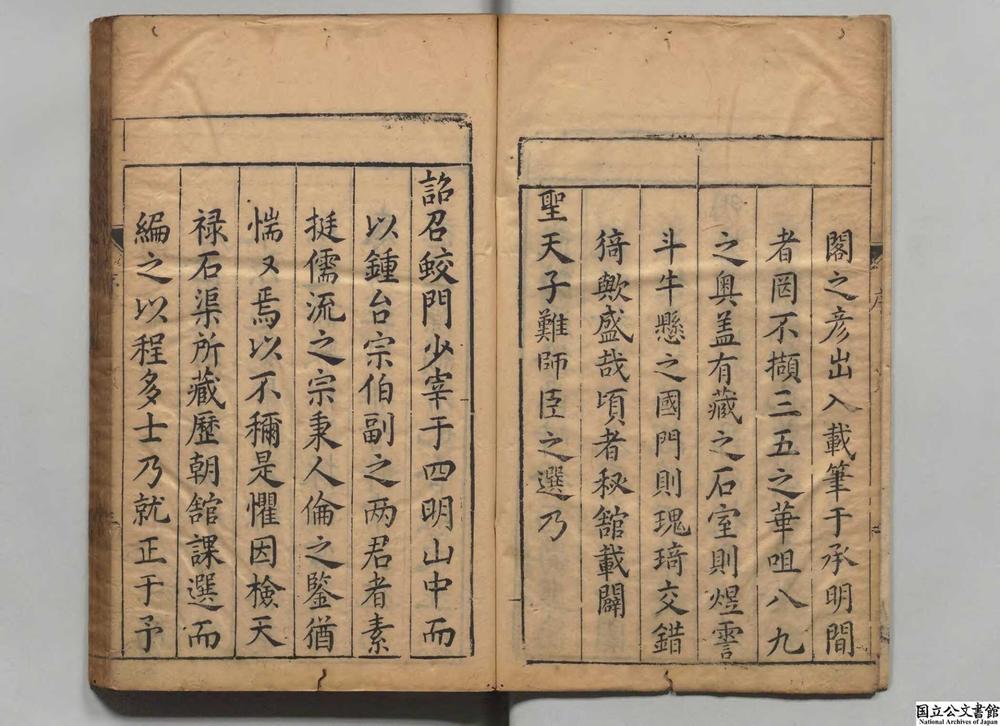 閣之彦出入載筆于承明間
者罔不擷三五之華咀八九
之奥盖有藏之石室則煜霅
斗牛懸之國門則瑰琦交錯
猗歟盛哉頃者秘舘載闢
聖天子難師臣之選乃
詔召蛟門少宰于四明山中而
以鍾台宗伯副之两君者素
挺儒流之宗秉人倫之鑒猶
惴〻焉以不稱是懼因檢天
禄石渠所藏歷朝舘課選而
編之以程多士乃就正于予
序
国立公文書館
National Archives of Japan